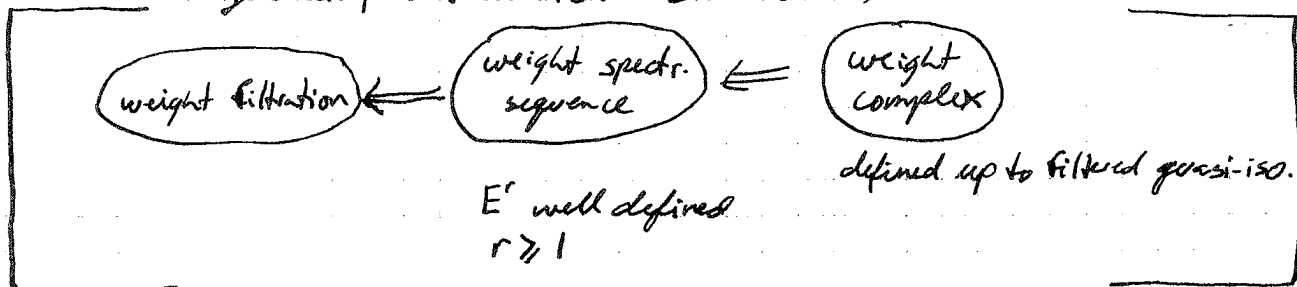 weight filtration ⇐ weight spectr. sequence ⇐ weight complex
defined up to filtered quasi-iso.
E^r well defined
r ≥ 1